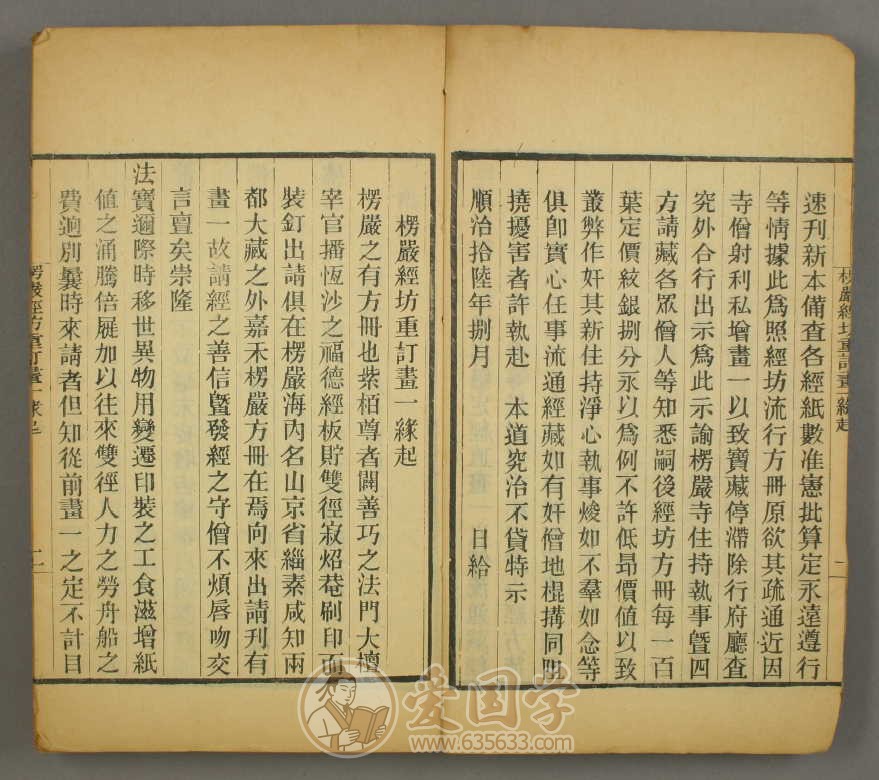 速刊新本備查各經紙數准憲批算定永遠遵行
等情據此爲照經坊流行方冊原欲其疏通近因
寺僧射利私增畫一以致寶藏停滯除行府廳查
究外合行出示爲此示諭楞嚴寺住持執事曁四
方請藏各眾僧人等知悉嗣後經坊方冊每一百
葉定價紋銀捌分永以爲例不許低昻價值以致
叢弊作奸其新住持淨心執事焌如不羣如念等
俱卽實心任事流通經藏如有奸僧地棍搆同阻
撓擾害者許執赴 本道究治不貸特示
順治拾陸年捌月 日給
楞嚴經坊重訂畫一緣起
楞嚴經坊重訂畫一緣起
楞嚴之有方冊也紫栢尊者闢善巧之法門大檀
宰官播恆沙之福德經板貯雙徑寂炤菴刷印而
裝釘出請俱在楞嚴海內名山京省緇素咸知兩
都大藏之外嘉禾楞嚴方冊在焉向來出請刊有
畫一故請經之善信曁發經之守僧不煩唇吻交
言亶矣崇隆
法寶邇際時移世異物用變遷印裝之工食滋增紙
値之涌騰倍屣加以往來雙徑人力之勞舟船之
費逈別曩時來請者但知從前畫一之定不計目
楞嚴經坊重訂畫一緣起
二
爱国学
www.635633.com